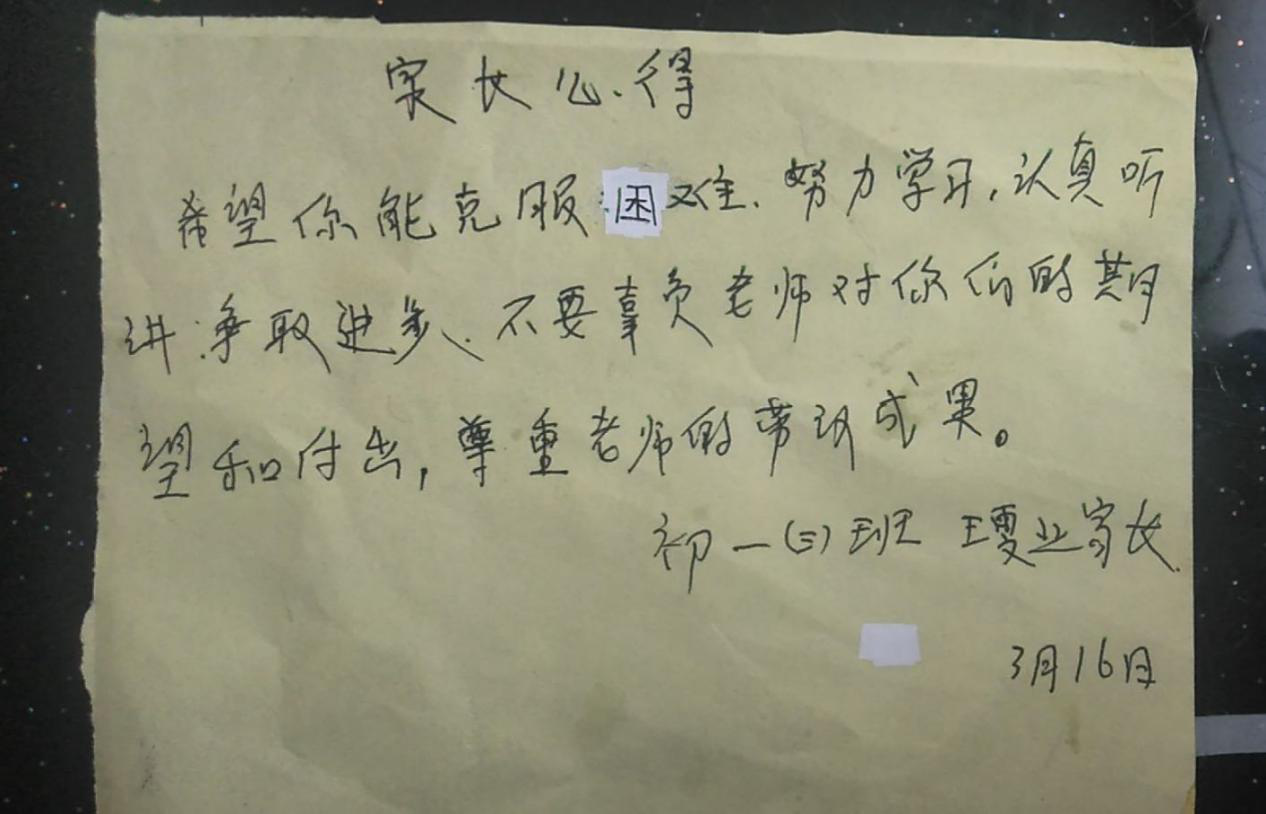 家长心得
希望你能克服困难.努力学习,认真听
讲.争取进步.不要辜负老师对你们的期
望和付出,尊重老师的劳动成果。
初一(三)班 家长
3月16日